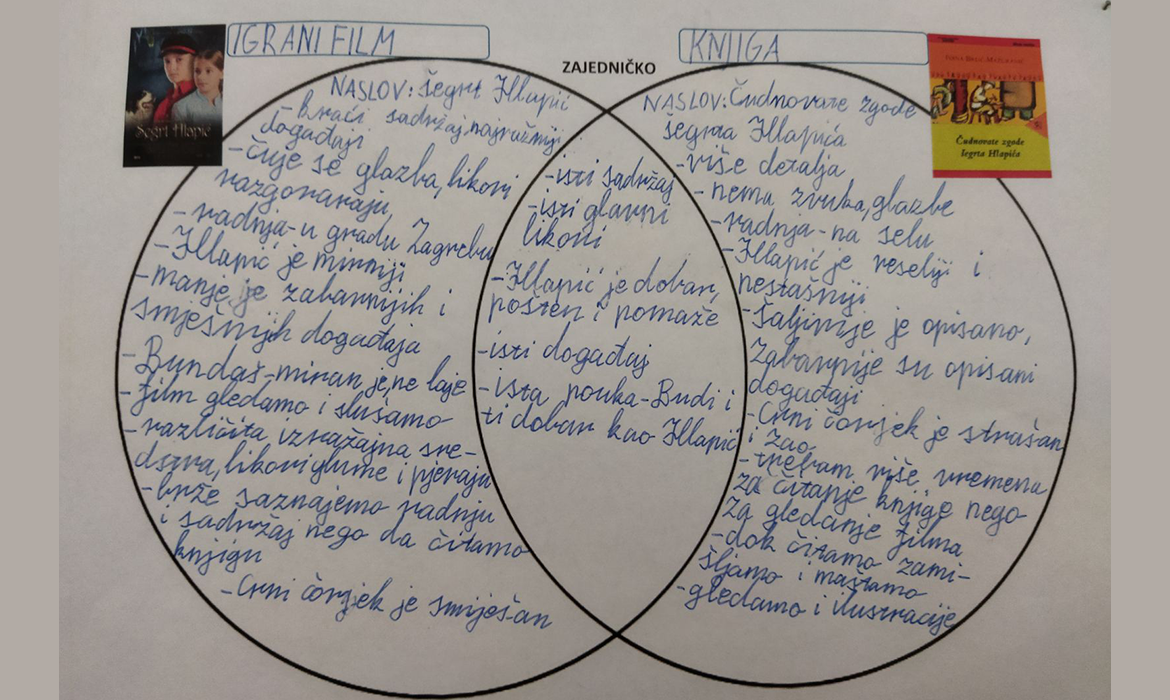 IGRANI FILM
NASLOV: Šegrt Hlapić
- kraći sadržaj, najvažniji
događaji
- čuje se glazba, likovi
razgovaraju
- radnja - u gradu Zagrebu
- Hlapić je mirniji
- manje je zabavnijih i
smješnijih događaja
- Bundaš - miran je, ne laje
- film gledamo i slušamo
- različita izražajna sre-
dstva, likovi glume i pjevaju
- brže saznajemo radnju
i sadržaj nego da čitamo
knjigu
- Crni čovjek je smiješan
Šegrt Hlapić
ZAJEDNIČKO
- isti sadržaj
- isti glavni
likovi
- Hlapić je dobar,
pošten i pomaže
- isti događaj
- ista pouka - Budi i
ti dobar kao Hlapić
KNJIGA
NASLOV: Čudnovate zgode
šegrta Hlapića
- više detalja
- nema zvuka, glazbe
- radnja - na selu
- Hlapić je veseliji i
nestašniji
- šaljivije je opisano,
zabavnije su opisani
događaji
- Crni čovjek je strašan
i zao
- trebam više vremena
za čitanje knjige nego
za gledanje filma
- dok čitamo zami-
šljamo i maštamo
- gledamo i ilustracije
Čudnovate zgode
šegrta Hlapića